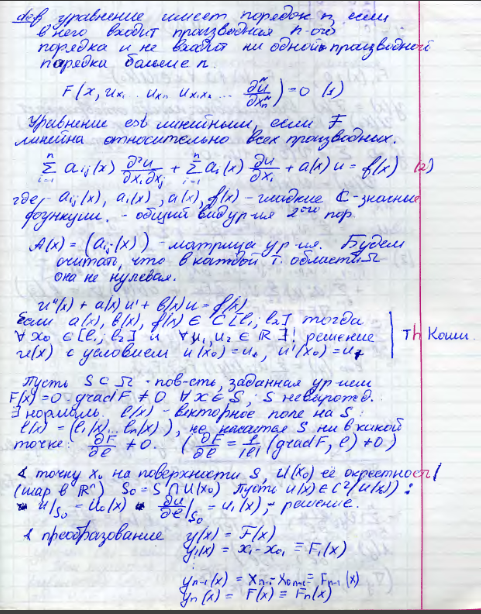 def уравнение имеет порядок n, если
в него входит производная n-ого
порядка и не входит ни одной производной
порядка больше n.
F(x, u_{x₁} ... u_{xₙ} u_{x₁x₁} ... ∂ⁿu/∂xₙⁿ) = 0 (1)
Уравнение наз линейным, если F
линейна относительно всех производных.
Σ a_{ij}(x) ∂²u/∂x_i∂x_j + Σ a_i(x) ∂u/∂x_i + a(x) u = f(x) (2)
где, a_{ij}(x), a_i(x), a(x), f(x) - гладкие C-значные
функции. - общий вид ур-ия 2ого пор.
A(x) = (a_{ij}(x)) - матрица ур-ия. Будем
считать, что в каждой т. области Ω
она не нулевая.
u''(x) + a(x) u' + b(x) u = f(x)
Если a(x), b(x), f(x) ∈ C[l₁, l₂] тогда
∀ x₀ ∈ [l₁, l₂] и ∀ u₁, u₂ ∈ ℝ ∃! решение
u(x) с условием u(x₀) = u₀, u'(x₀) = u₁
Th Коши.
Пусть S ⊂ Ω - пов-сть, заданная ур-ием
F(x) = 0 grad F ≠ 0 ∀ x ∈ S, S невырожд.
∃ нормаль. l(x) - векторное поле на S:
l(x) = (l₁(x) ... lₙ(x)), не касается S ни в какой
точке: ∂F/∂l ≠ 0. (∂F/∂l = 1/|l| (grad F, l) ≠ 0)
∢ точку x₀ на поверхности S, U(x₀) её окрестность
(шар в ℝⁿ) S₀ = S ∩ U(x₀) Пусть u(x) ∈ C²(U(x₀)):
u|_{S₀} = u₀(x) ∂u/∂l|_{S₀} = u₁(x) - решение.
∢ преобразование y(x) = F(x)
y₁(x) = x₁ - x₀₁ ≡ F₁(x)
⋮
y_{n-1}(x) = x_{n-1} - x_{0n-1} ≡ F_{n-1}(x)
yₙ(x) = F(x) ≡ Fₙ(x)